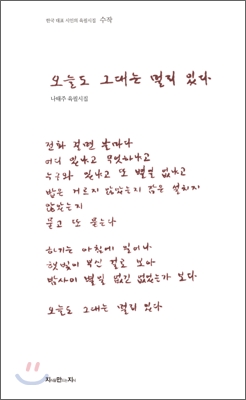 한국 대표 시인의 육필시집 수작
오늘도 그대는 멀리 있다
나태주 육필시집
전화 걸면 날마다
어디 있냐고 무엇하냐고
누구와 있냐고 또 별일 없냐고
밥은 거르지 않았는지 잠은 설치지
않았는지
묻고 또 묻는다
하기는 아침에 일어나
햇빛이 부신 걸로 보아
밤사이 별일 없긴 없었는가 보다.
오늘도 그대는 멀리 있다
지식을만드는지식